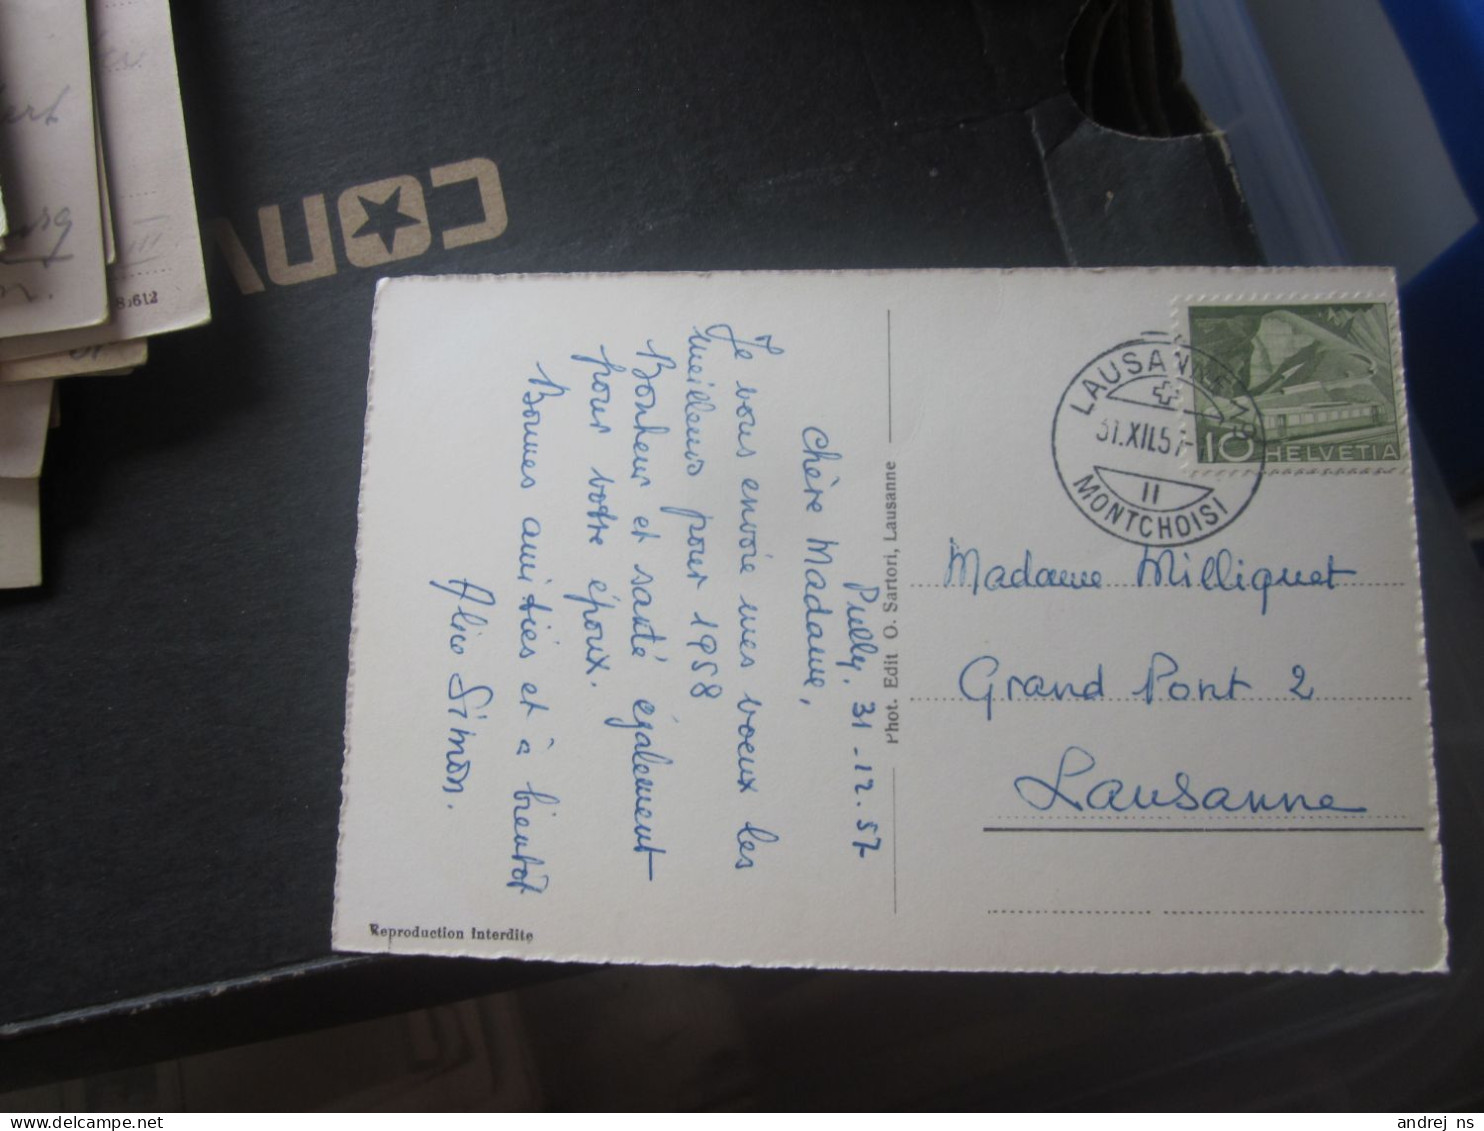 CONV
85612
Pully, 31-12.57
Chère Madame,
Je vous envoie mes voeux les
meilleurs pour 1958
Bonheur et santé également
pour votre époux.
Bonnes amitiés et à bientôt
Alice Simon.
Reproduction Interdite
Phot. Edit O. Sartori, Lausanne
LAUSANNE 19
31.XII.57-
11
MONTCHOISI
10 HELVETIA
Madame Milliquet
Grand Pont 2
Lausanne
andrej ns